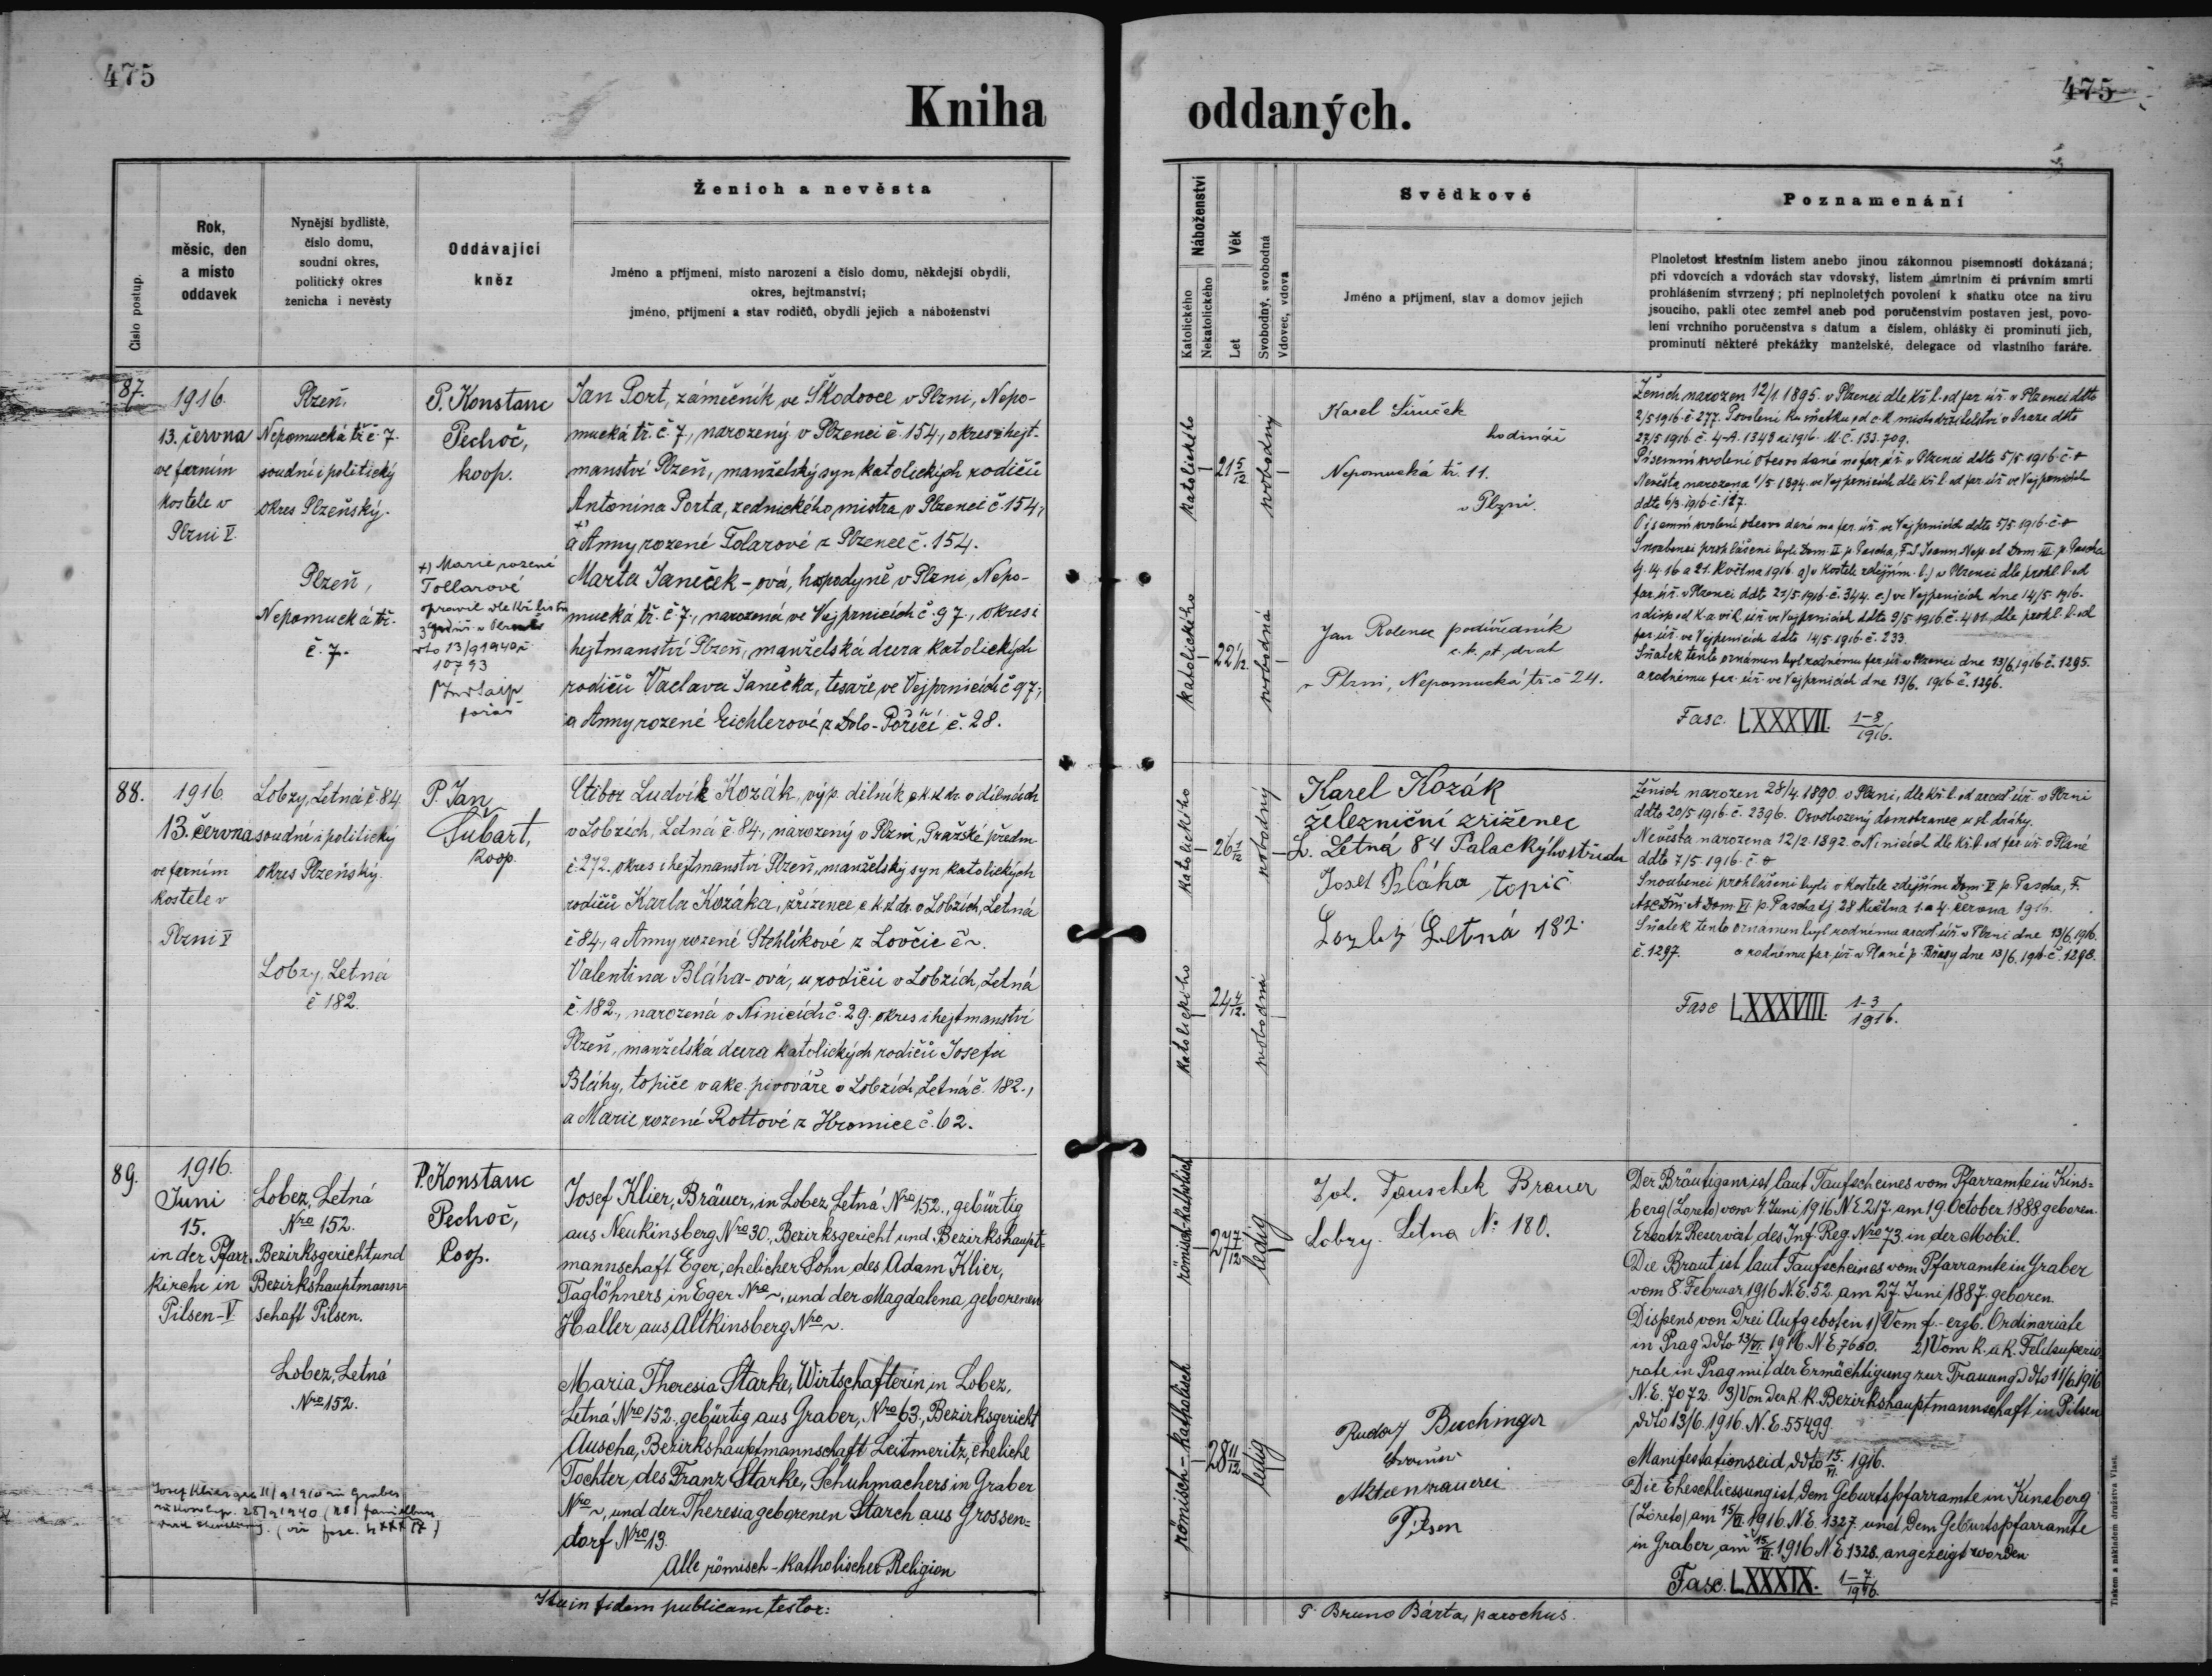 475
475
Kniha oddaných.
Číslo postup.
Rok,
měsíc, den
a místo
oddavek
Nynější bydliště,
číslo domu,
soudní okres,
politický okres
ženicha i nevěsty
Oddávající
kněz
Ženich a nevěsta
Jméno a příjmení, místo narození a číslo domu, někdejší obydlí,
okres, hejtmanství;
jméno, příjmení a stav rodičů, obydlí jejich a náboženství
Náboženství
Katolického
Nekatolického
Věk
Let
Svobodný, svobodná
Vdovec, vdova
Svědkové
Jméno a příjmení, stav a domov jejich
Poznamenání
Plnoletost křestním listem anebo jinou zákonnou písemností dokázaná;
při vdovcích a vdovách stav vdovský, listem úmrtním či právním smrti
prohlášením stvrzený; při neplnoletých povolení k sňatku otce na živu
jsoucího, pakli otec zemřel aneb pod poručenstvím postaven jest, povo-
lení vrchního poručenstva s datum a číslem, ohlášky či prominutí jich,
prominutí některé překážky manželské, delegace od vlastního faráře.
87.
1916.
13. června
ve farním
kostele v
Plzni V.
Plzeň,
Nepomucká tř. č. 7.
soudní i politický
okres Plzeňský.
Plzeň,
Nepomucká tř.
č. 7.
P. Konstanc
Pechoč,
koop.
+) Marie rozené
Tollarové
opravil dle kř. listu
dto 13/9 1940 č.
10793
farář
Jan Port, zámečník ve Škodovce v Plzni, Nepo-
mucká tř. č. 7., narozený v Plzenci č. 154., okres i hejt-
manství Plzeň, manželský syn katolických rodičů
Antonína Porta, zednického mistra v Plzenci č. 154.,
+)
a Anny rozené Tolarové z Plzence č. 154.
Marta Janeček-ová, hospodyně v Plzni, Nepo-
mucká tř. č. 7., narozená ve Vejprnicích č. 97., okres i
hejtmanství Plzeň, manželská dcera katolických
rodičů Václava Janečka, tesaře, ve Vejprnicích č. 97.,
a Anny rozené Eichlerové z Dolo-Poříčí č. 28.
katolického
21 5/12
svobodný
katolického
22 1/2.
svobodná
Karel Šimeček
hodinář
Nepomucká tř. 11.
v Plzni.
Jan Rolenec podúředník
c. k. st. drah
v Plzni, Nepomucká tř. č 24.
Ženich narozen 12/1. 1895. v Plzenci dle kř. l. od far. úř. v Plzenci ddto
2/5 1916. č. 277. Povolení ku sňatku od c. k. místodržitelství v Praze ddto
27/5 1916. č. 4-A. 1348 ai 1916. M. č. 133.709.
Písemní svolení otcovo dané na far. úř. v Plzenci ddto 5/5 1916. č.
Nevěsta narozena 1/5 1894. ve Vejprnicích dle kř. l. od far. úř. ve Vejprnicích
ddto 6/3. 1916. č. 127.
Písemní svolení otcovo dané na far. úř. ve Vejprnicích ddto 5/5 1916. č.
Snoubenci prohlášeni byli Dom. II p. Pascha, F. S. Joann. Nep. et Dom. III. p. Pascha
tj. 14. 16 a 21. května 1916 a) v kostele zdejším. b.) v Plzenci dle prohl. l. od
far. úř. v Plzenci ddt. 21/5. 1916. č. 344. c.) ve Vejprnicích dne 14/5. 1916.
s disp. od k. a vik. úř. ve Vejprnicích ddto 9/5 1916. č. 401., dle prohl. l. od
far. úř. ve Vejprnicích ddto 14/5. 1916. č. 233.
Sňatek tento oznámen byl rodnému far. úř. v Plzenci dne 13/6. 1916. č. 1295.
a rodnému far. úř. ve Vejprnicích dne 13/6. 1916. č. 1296.
Fasc. LXXXVII. 1-8/1916.
88.
1916.
13. června
ve farním
kostele v
Plzni V
Lobzy, Letná č. 84.
soudní i politický
okres Plzeňský.
Lobzy, Letná
č 182.
P. Jan
Šubart,
koop.
Ctibor Ludvík Kozák, výp. dělník c. k. st. dr. v dílnách
v Lobzích, Letná č. 84., narozený v Plzni, Pražské předm.
č. 272. okres i hejtmanství Plzeň, manželský syn katolických
rodičů Karla Kozáka, zřízence c. k. st. dr. v Lobzích, Letná
č 84., a Anny rozené Stehlíkové z Lovčic č ~.
Valentina Bláha-ová, u rodičů v Lobzích, Letná
č. 182., narozená v Ninicích č. 29. okres i hejtmanství
Plzeň, manželská dcera katolických rodičů Josefa
Bláhy, topiče v akc. pivováře v Lobzích, Letná č. 182.,
a Marie rozené Rottové z Hromice č. 62.
katolického
26 1/12
svobodný
katolického
24 4/12.
svobodná
Karel Kozák
železniční zřízenec
L. Letná 84 Palackýho třída
Josef Bláha topič
Lozby Letná 182.
Ženich narozen 28/4. 1890. v Plzni, dle kř. l. od arcid. úř. v Plzni
ddto 20/5 1916. č. 2396. Osvobozený domobranec u st. dráhy.
Nevěsta narozena 12/2. 1892. v Ninicích dle kř. l. od far. úř. v Plané
ddto 7/5 1916. č.
Snoubenci prohlášeni byli v kostele zdejším Dom. V p. Pascha, F.
Asc. Dni et Dom. VI p. Pascha tj. 28. května 1. a 4. června 1916.
Sňatek tento oznámen byl rodnému arcid. úř. v Plzni dne 13/6. 1916.
č. 1297. a rodnému far. úř. v Plané p. Břasy dne 13/6. 1916. č. 1298.
Fasc LXXXVIII. 1-3/1916.
89.
1916.
Juni
15.
in der Pfarr-
kirche in
Pilsen-V
Lobez, Letná
Nro 152.
Bezirksgericht und
Bezirkshauptmann-
schaft Pilsen.
Lobez, Letná
Nro 152.
P. Konstanc
Pechoč,
Coop.
Josef Klier, Bräuer, in Lobez, Letná Nro 152., gebürtig
aus Neukinsberg Nro 30., Bezirksgericht und Bezirkshaupt-
mannschaft Eger, ehelicher Sohn des Adam Klier,
Taglöhners in Eger Nro ~, und der Magdalena, geborenen
Haller aus Altkinsberg Nro ~.
Maria Theresia Starke, Wirtschafterin, in Lobez,
Letná Nro 152., gebürtig aus Graber, Nro 63., Bezirksgericht
Auscha, Bezirkshauptmannschaft Leitmeritz, eheliche
Tochter des Franz Starke, Schuhmachers in Graber
Nro ~, und der Theresia geborenen Starch aus Grossen-
dorf Nro 13.
Alle römisch-katholischer Religion
römisch-katholisch
27 7/12
ledig
römisch-katholisch
28 11/12
ledig
Jos. Tauschek Brauer
Lobzy. Letna No 180.
Rudolf Buchinger
Aktienbrauerei
Pilsen
Der Bräutigam ist laut Taufscheines vom Pfarramte in Kins-
berg (Loreto) vom 4. Juni 1916 N. E. 217. am 19. October 1888 geboren.
Ersatz Reservist, des Inf. Reg. Nro 73. in der Mobil.
Die Braut ist laut Taufscheines vom Pfarramte in Graber
vom 8. Februar 1916 N. E. 52. am 27. Juni 1887. geboren.
Dispens von Drei Aufgeboten 1) Vom f.-erzb. Ordinariate
in Prag ddto 13/VI. 1916. N. E. 7660. 2) Vom k. u. k. Feldsuperio
rate in Prag mit der Ermächtigung zur Trauung ddto 11/6. 1916
N. E. 7072. 3) Von der k. k. Bezirkshauptmannschaft in Pilsen
ddto 13/6. 1916. N. E. 55499.
Manifestationseid ddto 15./VI. 1916.
Die Eheschliessung ist dem Geburtspfarramte in Kinsberg
(Loreto) am 15/VI. 1916. N. E. 1327. und dem Geburtspfarramte
in Graber am 15/VI. 1916 N. E. 1328. angezeigt worden
Fasc. LXXXIX. 1-7/1916.
Ita in fidem publicam testor:
P. Bruno Bárta, parochus.
Tiskem a nákladem družstva Vlast.